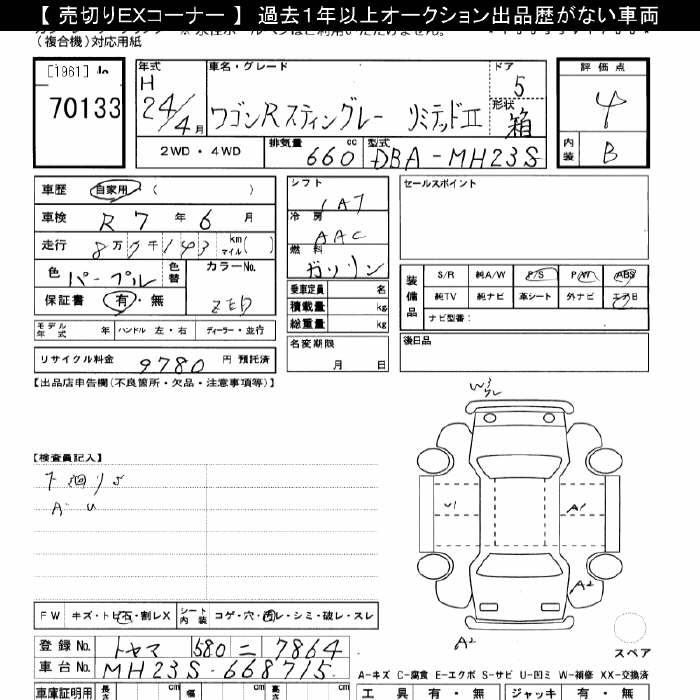 【 売切りEXコーナー 】 過去1年以上オークション出品歴がない車両
(複合機)対応用紙
[1961]
70133
年式 H 24/4月
車名・グレード
ワゴンRスティングレー リミテッドII
ドア 5
形状 箱
評価点 4
内装 B
2WD・4WD
排気量 660 cc
型式 DBA-MH23S
車歴 自家用 ( )
車検 R 7 年 6 月
走行 8万 千143 kmマイル( )
色 パープル 色替
カラーNo. ZED
保証書 有・無
モデル年式 年 ハンドル 左・右 ディーラー・並行
リサイクル料金 9780 円 預託済
シフト IAT
冷房 AAC
燃料 ガソリン
乗車定員 名
積載量 kg
総重量 kg
名変期限
月 日
セールスポイント
装備品
S/R 純A/W P/S P/W ABS
純TV 純ナビ 革シート 外ナビ エアB
ナビ型番:
後日品
【出品店申告欄(不良箇所・欠品・注意事項等)】
【検査員記入】
下回りS
A U
W3
U1
A1
A2
A2
スペア
FW キズ・トビ石・割レX
シート内装 コゲ・穴・汚レ・シミ・破レ・スレ
登録No. トヤマ 580 ニ 7864
車台No. MH23S-668715
A-キズ C-腐食 E-エクボ S-サビ U-凹ミ W-補修 XX-交換済
車庫証明用 長さ cm 幅 cm 高さ cm
工具 有・無 ジャッキ 有・無